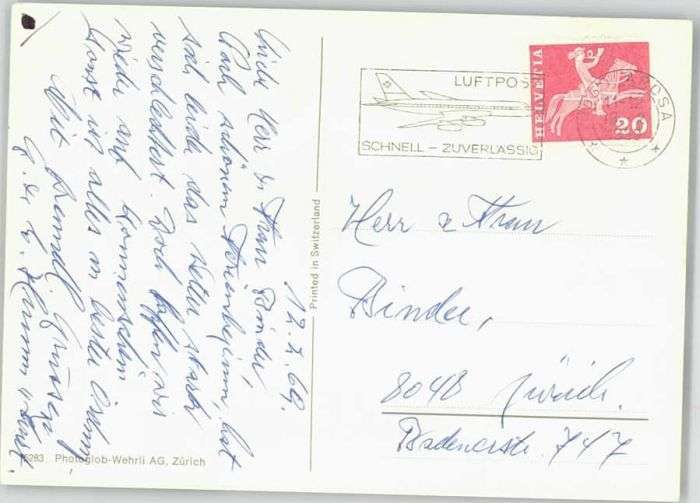 12.7.69.
Liebe Herr & Frau Binder
Nach schönem Ferienbeginn, hat
sich leider das Wetter stark
verschlechtert. Doch hoffen wir
wieder auf Sonnenschein
sonst ist alles in bester Ordnung
Mit freundl. Grüssen
LUFTPOST
SCHNELL – ZUVERLÄSSIG
HELVETIA
20
AROSA
Herr & Frau
Binder,
8048 Zürich.
Badenerstr. 747
Printed in Switzerland
Photoglob-Wehrli AG, Zürich